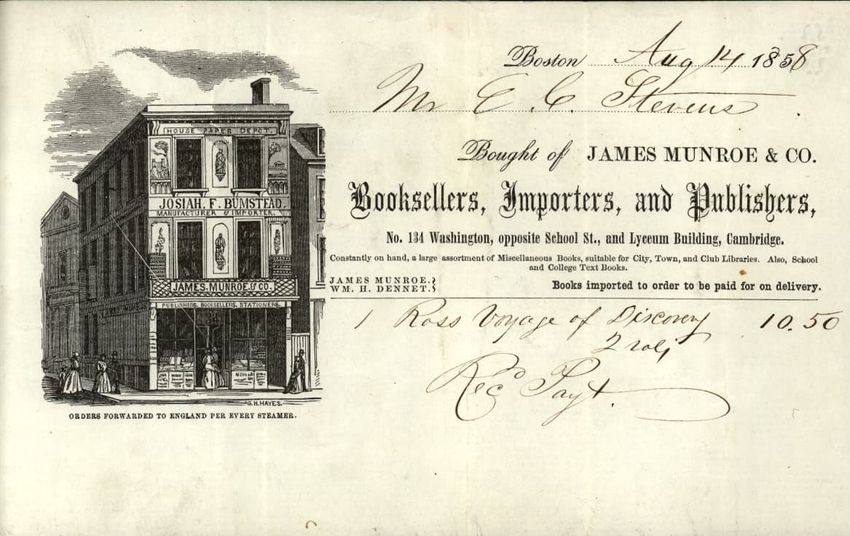 Boston Aug 14 1858
Mr E. C. Stevens
Bought of JAMES MUNROE & CO.
Booksellers, Importers, and Publishers,
No. 134 Washington, opposite School St., and Lyceum Building, Cambridge.
Constantly on hand, a large assortment of Miscellaneous Books, suitable for City, Town, and Club Libraries. Also, School
and College Text Books.
JAMES MUNROE.
WM. H. DENNET.
Books imported to order to be paid for on delivery.
1 Ross Voyage of Discovery 10.50
2 vols
Rec'd Payt.
HOUSE PAPER DEPOT.
JOSIAH. F. BUMSTEAD.
MANUFACTURER & IMPORTER.
JAMES. MUNROE & CO.
PUBLISHERS. BOOKSELLERS. STATIONERS.
G. H. HAYES.
ORDERS FORWARDED TO ENGLAND PER EVERY STEAMER.